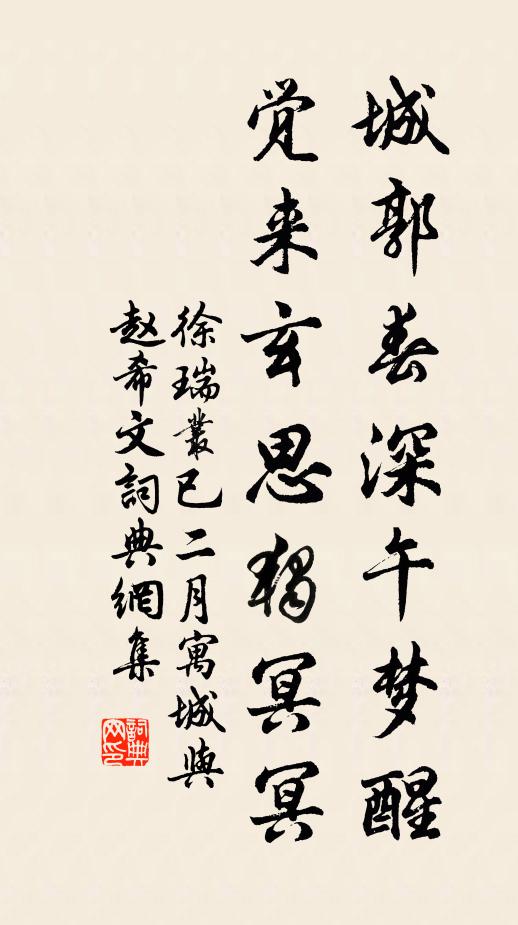 城郭春深午梦醒
觉来玄思独冥冥
徐瑞叢巳二月寓城與
赵希文詞典網集
詞典
网印